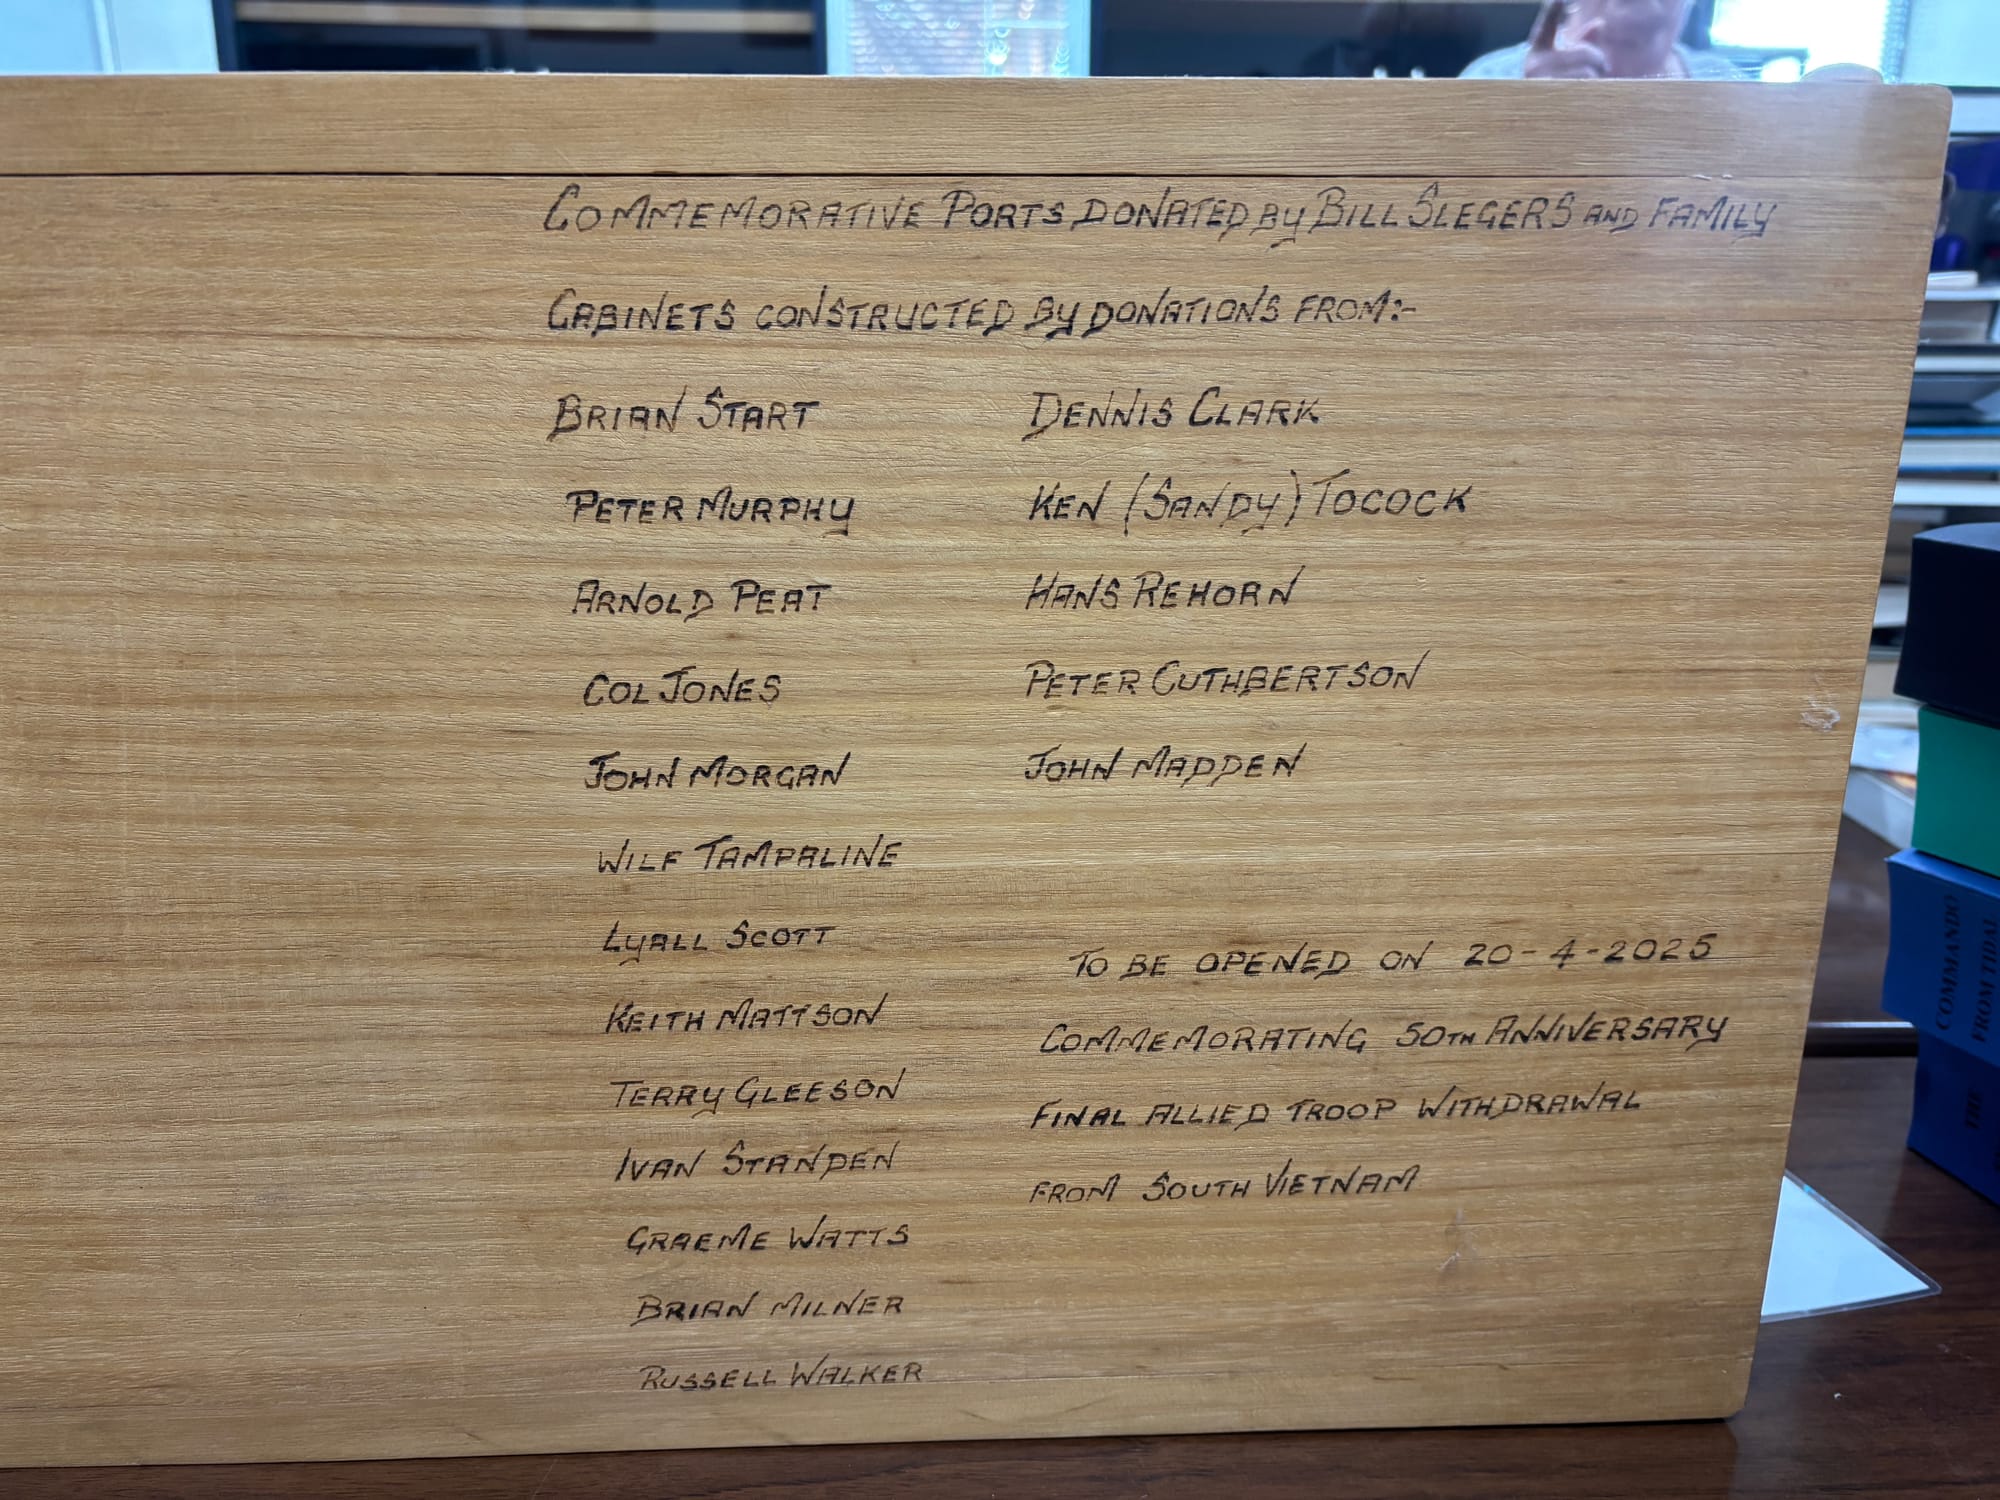 COMMEMORATIVE PORTS DONATED BY BILL SLEGERS AND FAMILY
CABINETS CONSTRUCTED BY DONATIONS FROM:-
BRIAN START
PETER MURPHY
ARNOLD PEAT
COL JONES
JOHN MORGAN
WILF TAMPALINE
LYALL SCOTT
KEITH MATTSON
TERRY GLEESON
IVAN STANDEN
GRAEME WATTS
BRIAN MILNER
RUSSELL WALKER
DENNIS CLARK
KEN (SANDY) TOCOCK
HANS REHORN
PETER CUTHBERTSON
JOHN MADDEN
TO BE OPENED ON 20-4-2025
COMMEMORATING 50TH ANNIVERSARY
FINAL ALLIED TROOP WITHDRAWAL
FROM SOUTH VIETNAM
COMMANDO
FROM TIDAL
THE